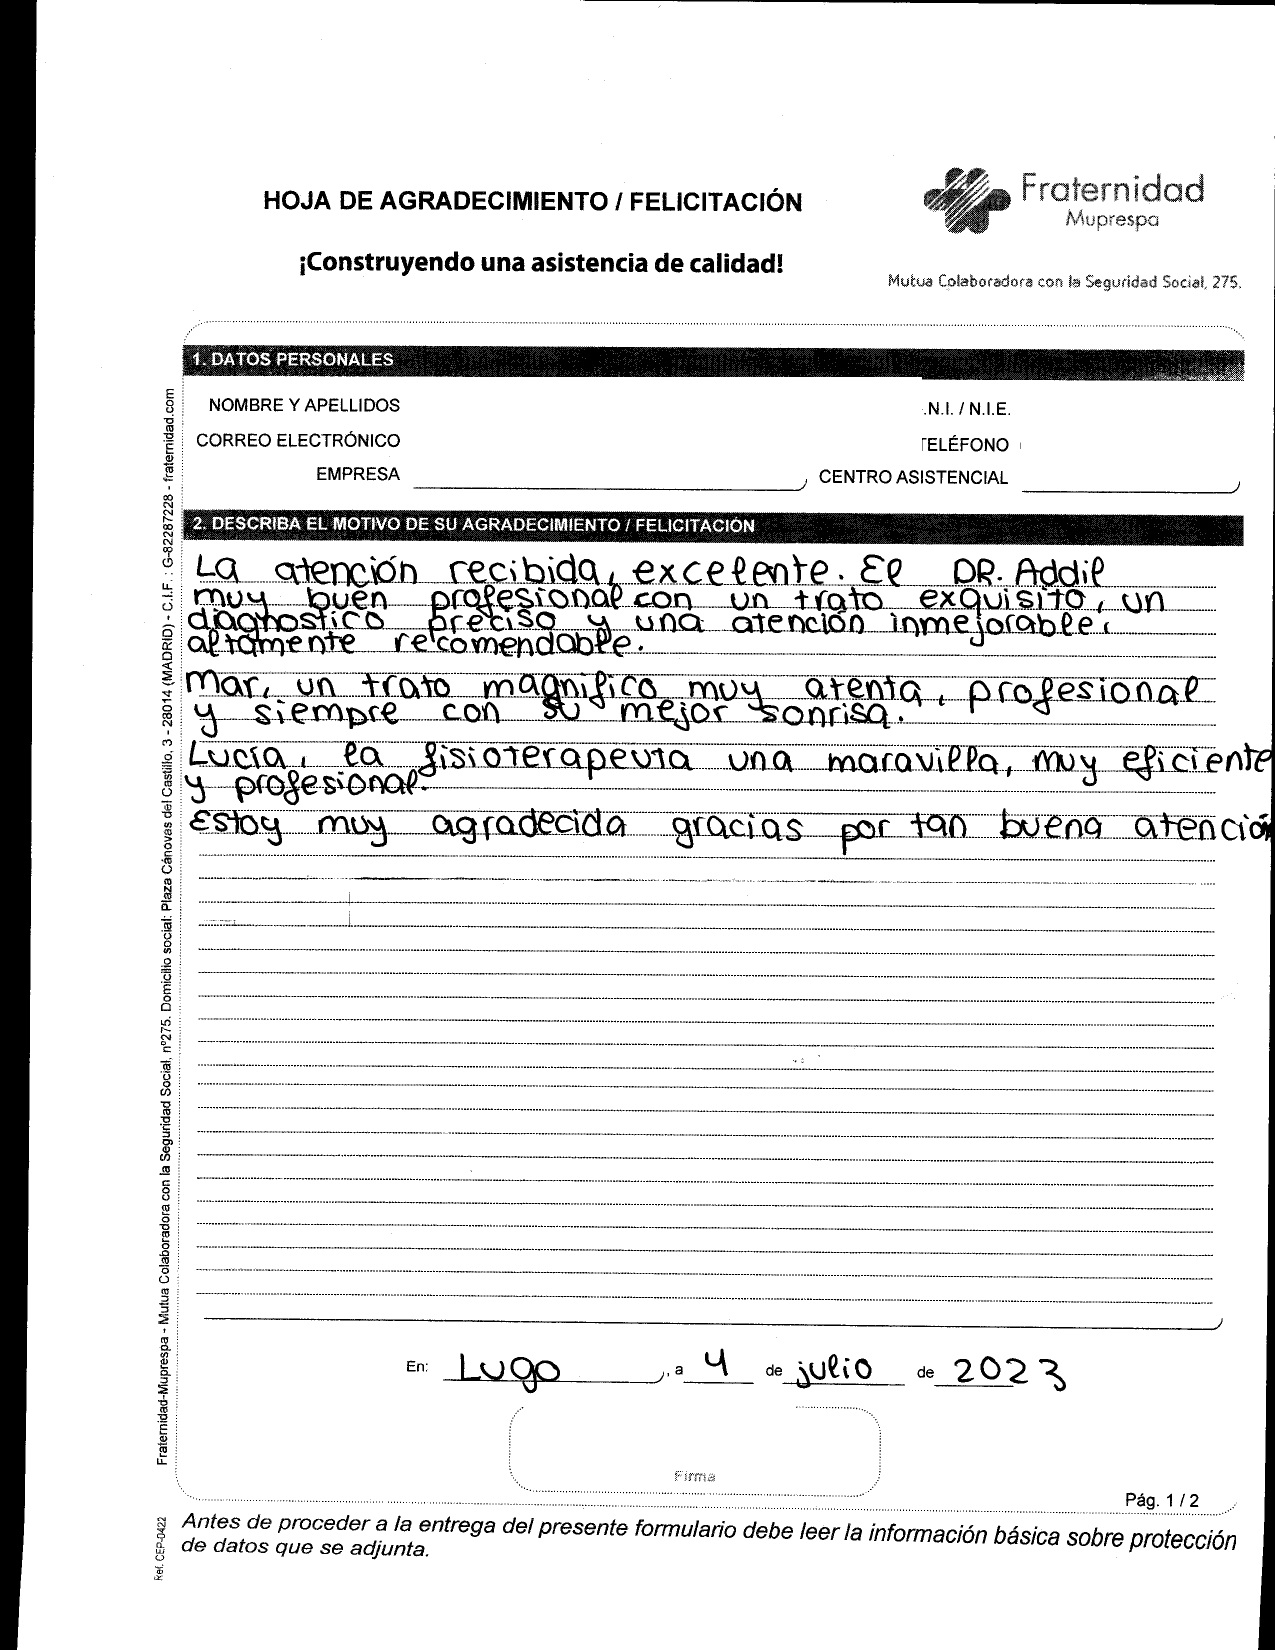 HOJA DE AGRADECIMIENTO / FELICITACIÓN
¡Construyendo una asistencia de calidad!
Fraternidad
Muprespa
Mutua Colaboradora con la Seguridad Social, 275.
1. DATOS PERSONALES
NOMBRE Y APELLIDOS
.N.I. / N.I.E.
CORREO ELECTRÓNICO
TELÉFONO
EMPRESA
CENTRO ASISTENCIAL
2. DESCRIBA EL MOTIVO DE SU AGRADECIMIENTO / FELICITACIÓN
La atención recibida, excelente. El DR. Addil
muy buen profesional con un trato exquisito, un
diagnostico preciso y una atención inmejorable,
altamente recomendable.
Mar, un trato magnifico muy atenta, profesional
y siempre con su mejor sonrisa.
Lucía, la fisioterapeuta una maravilla, muy eficiente
y profesional.
Estoy muy agradecida gracias por tan buena atención
En: Lugo, a 4 de julio de 2023
Firma
Pág. 1 / 2
Antes de proceder a la entrega del presente formulario debe leer la información básica sobre protección
de datos que se adjunta.
Fraternidad-Muprespa - Mutua Colaboradora con la Seguridad Social, nº275. Domicilio social: Plaza Cánovas del Castillo, 3 - 28014 (MADRID) - C.I.F. : G-82287228 - fraternidad.com
Ref. CEP-0422